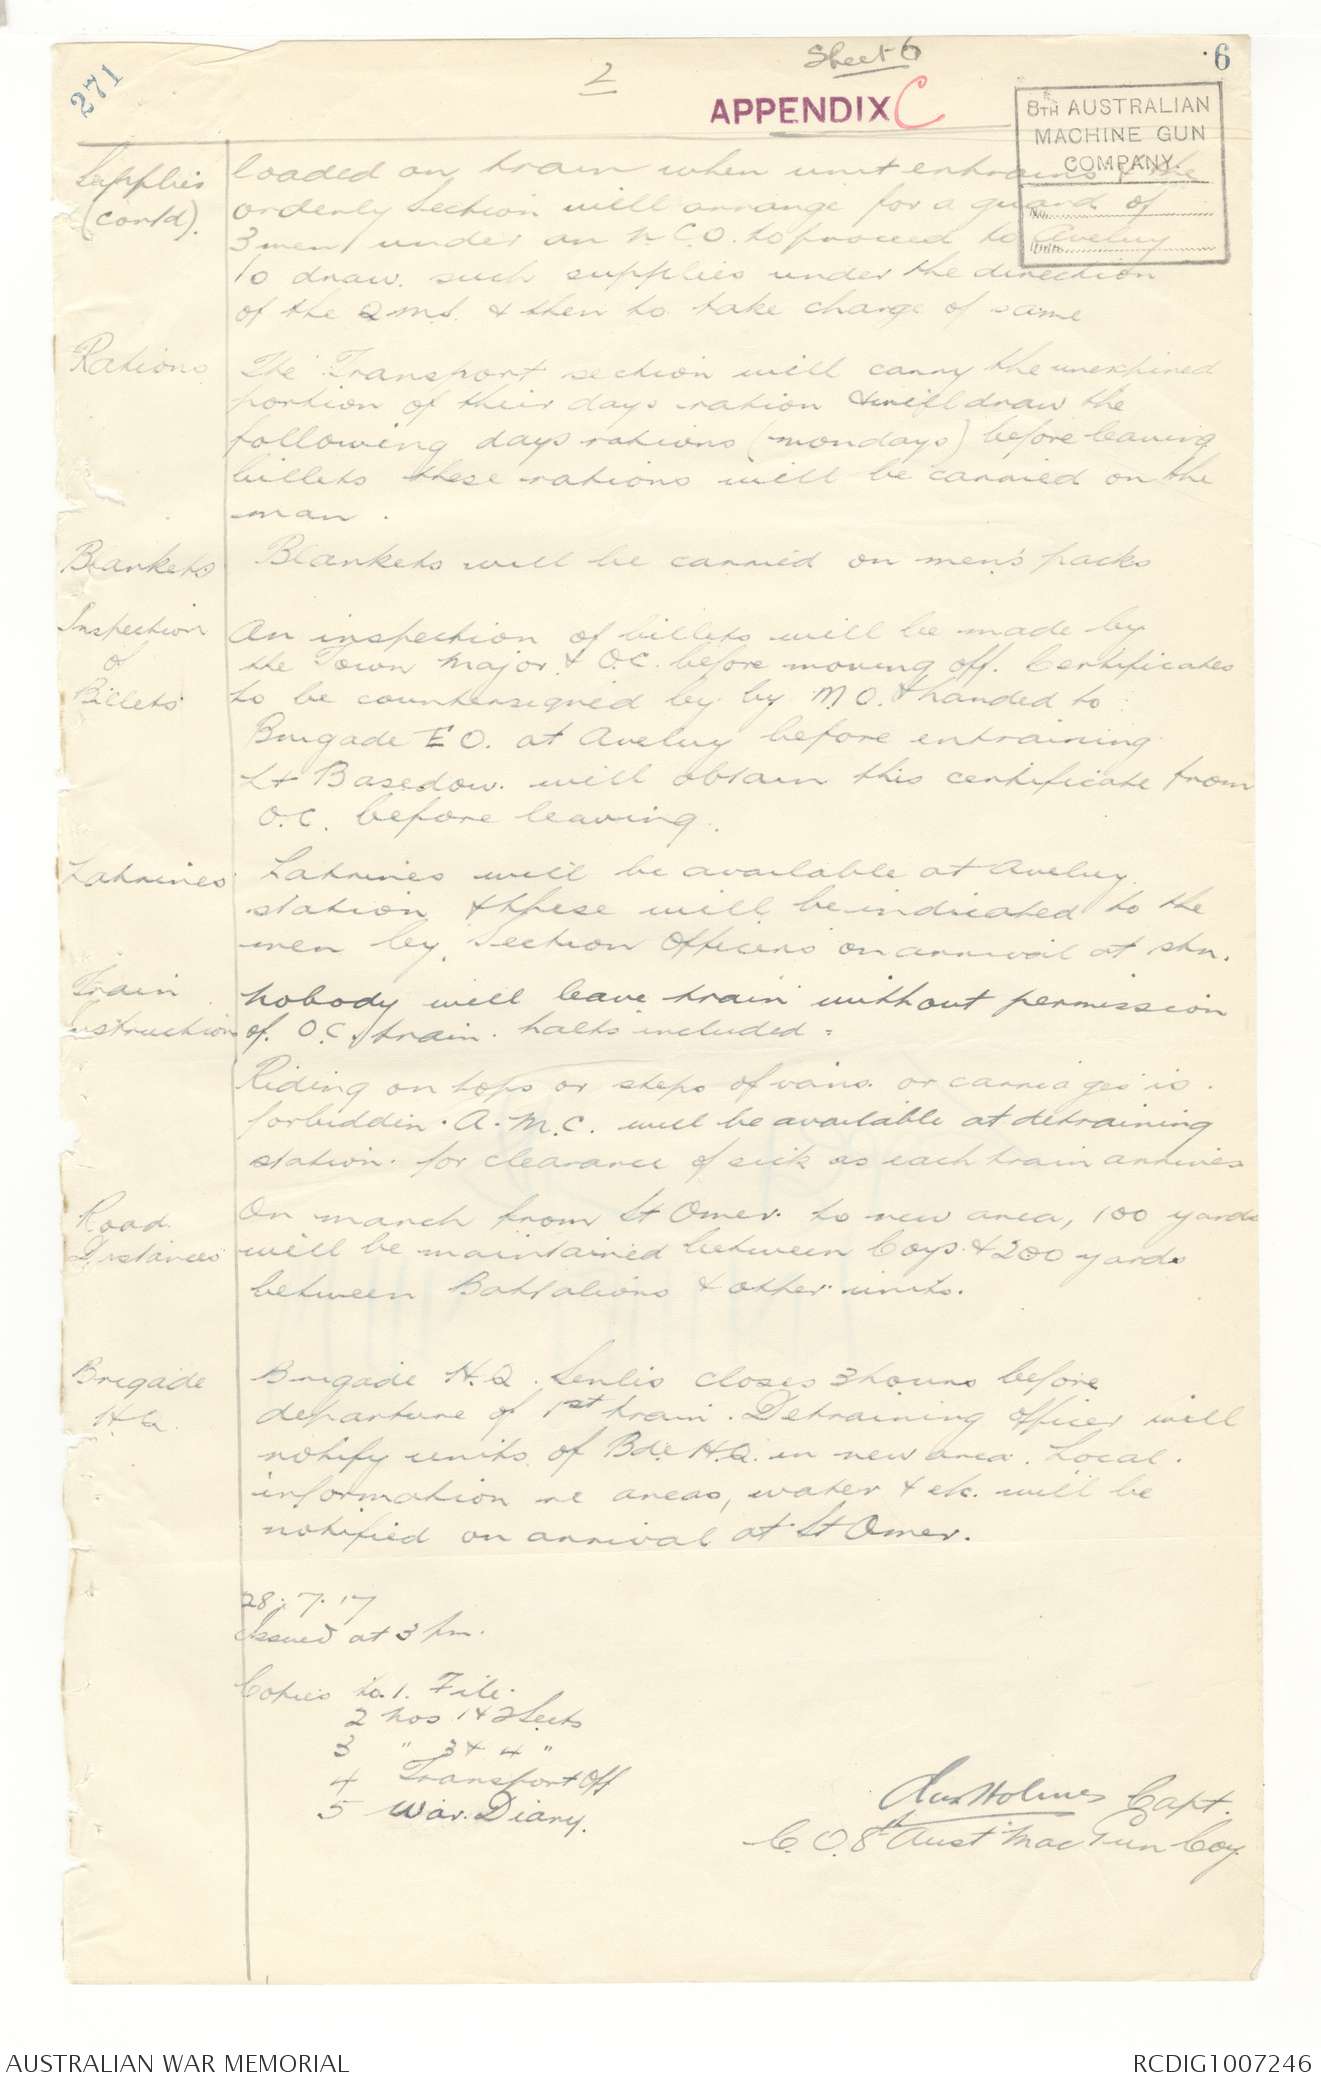 271
2
Sheet 6
6
APPENDIX C
8TH AUSTRALIAN
MACHINE GUN
COMPANY.
No.
Date
Supplies
(contd).
loaded on train when unit entrains & the
orderly Section will arrange for a guard of
3 men under an N.C.O. to proceed to Aveluy
to draw such supplies under the direction
of the Q.M.S. & then to take charge of same
Rations
The Transport section will carry the unexpired
portion of their days ration & will draw the
following days rations (mondays) before leaving
billets these rations will be carried on the
man.
Blankets
Blankets will be carried on men's packs
Inspection
of
Billets
An inspection of billets will be made by
the Town Major & O.C. before moving off. Certificates
to be countersigned by by M.O. & handed to
Brigade E O. at Aveluy before entraining
Lt Basedow. will obtain this certificate from
O.C. before leaving.
Latrines
Latrines will be available at Aveluy
station, & these will be indicated to the
men by Section Officers on arrival at stn.
Train
Instructions
Nobody will leave train without permission
of O.C. train. halts included.
Riding on tops or steps of vans or carriages is.
forbiddin. A.M.C. will be available at detraining
station. for clearance of sick as each train arrives
Road
Distances
On march from St Omer to new area, 100 yards
will be maintained between Coys. & 200 yards
between Battalions & other units.
Brigade
H.Q.
Brigade H.Q. Senlis closes 3 hours before
departure of 1st train. Detraining officer will
notify units of Bde. H.Q. in new area. Local.
information re areas, water & etc. will be
notified on arrival at St Omer.
28.7.17
Issued at 3 pm.
Copies to. 1. File.
2 Nos 1 & 2 Sects
3 " 3 & 4 "
4 Transport Off
5 War. Diary.
Holmes Capt.
C.O. 8th Aust Mac Gun Coy.
AUSTRALIAN WAR MEMORIAL
RCDIG1007246